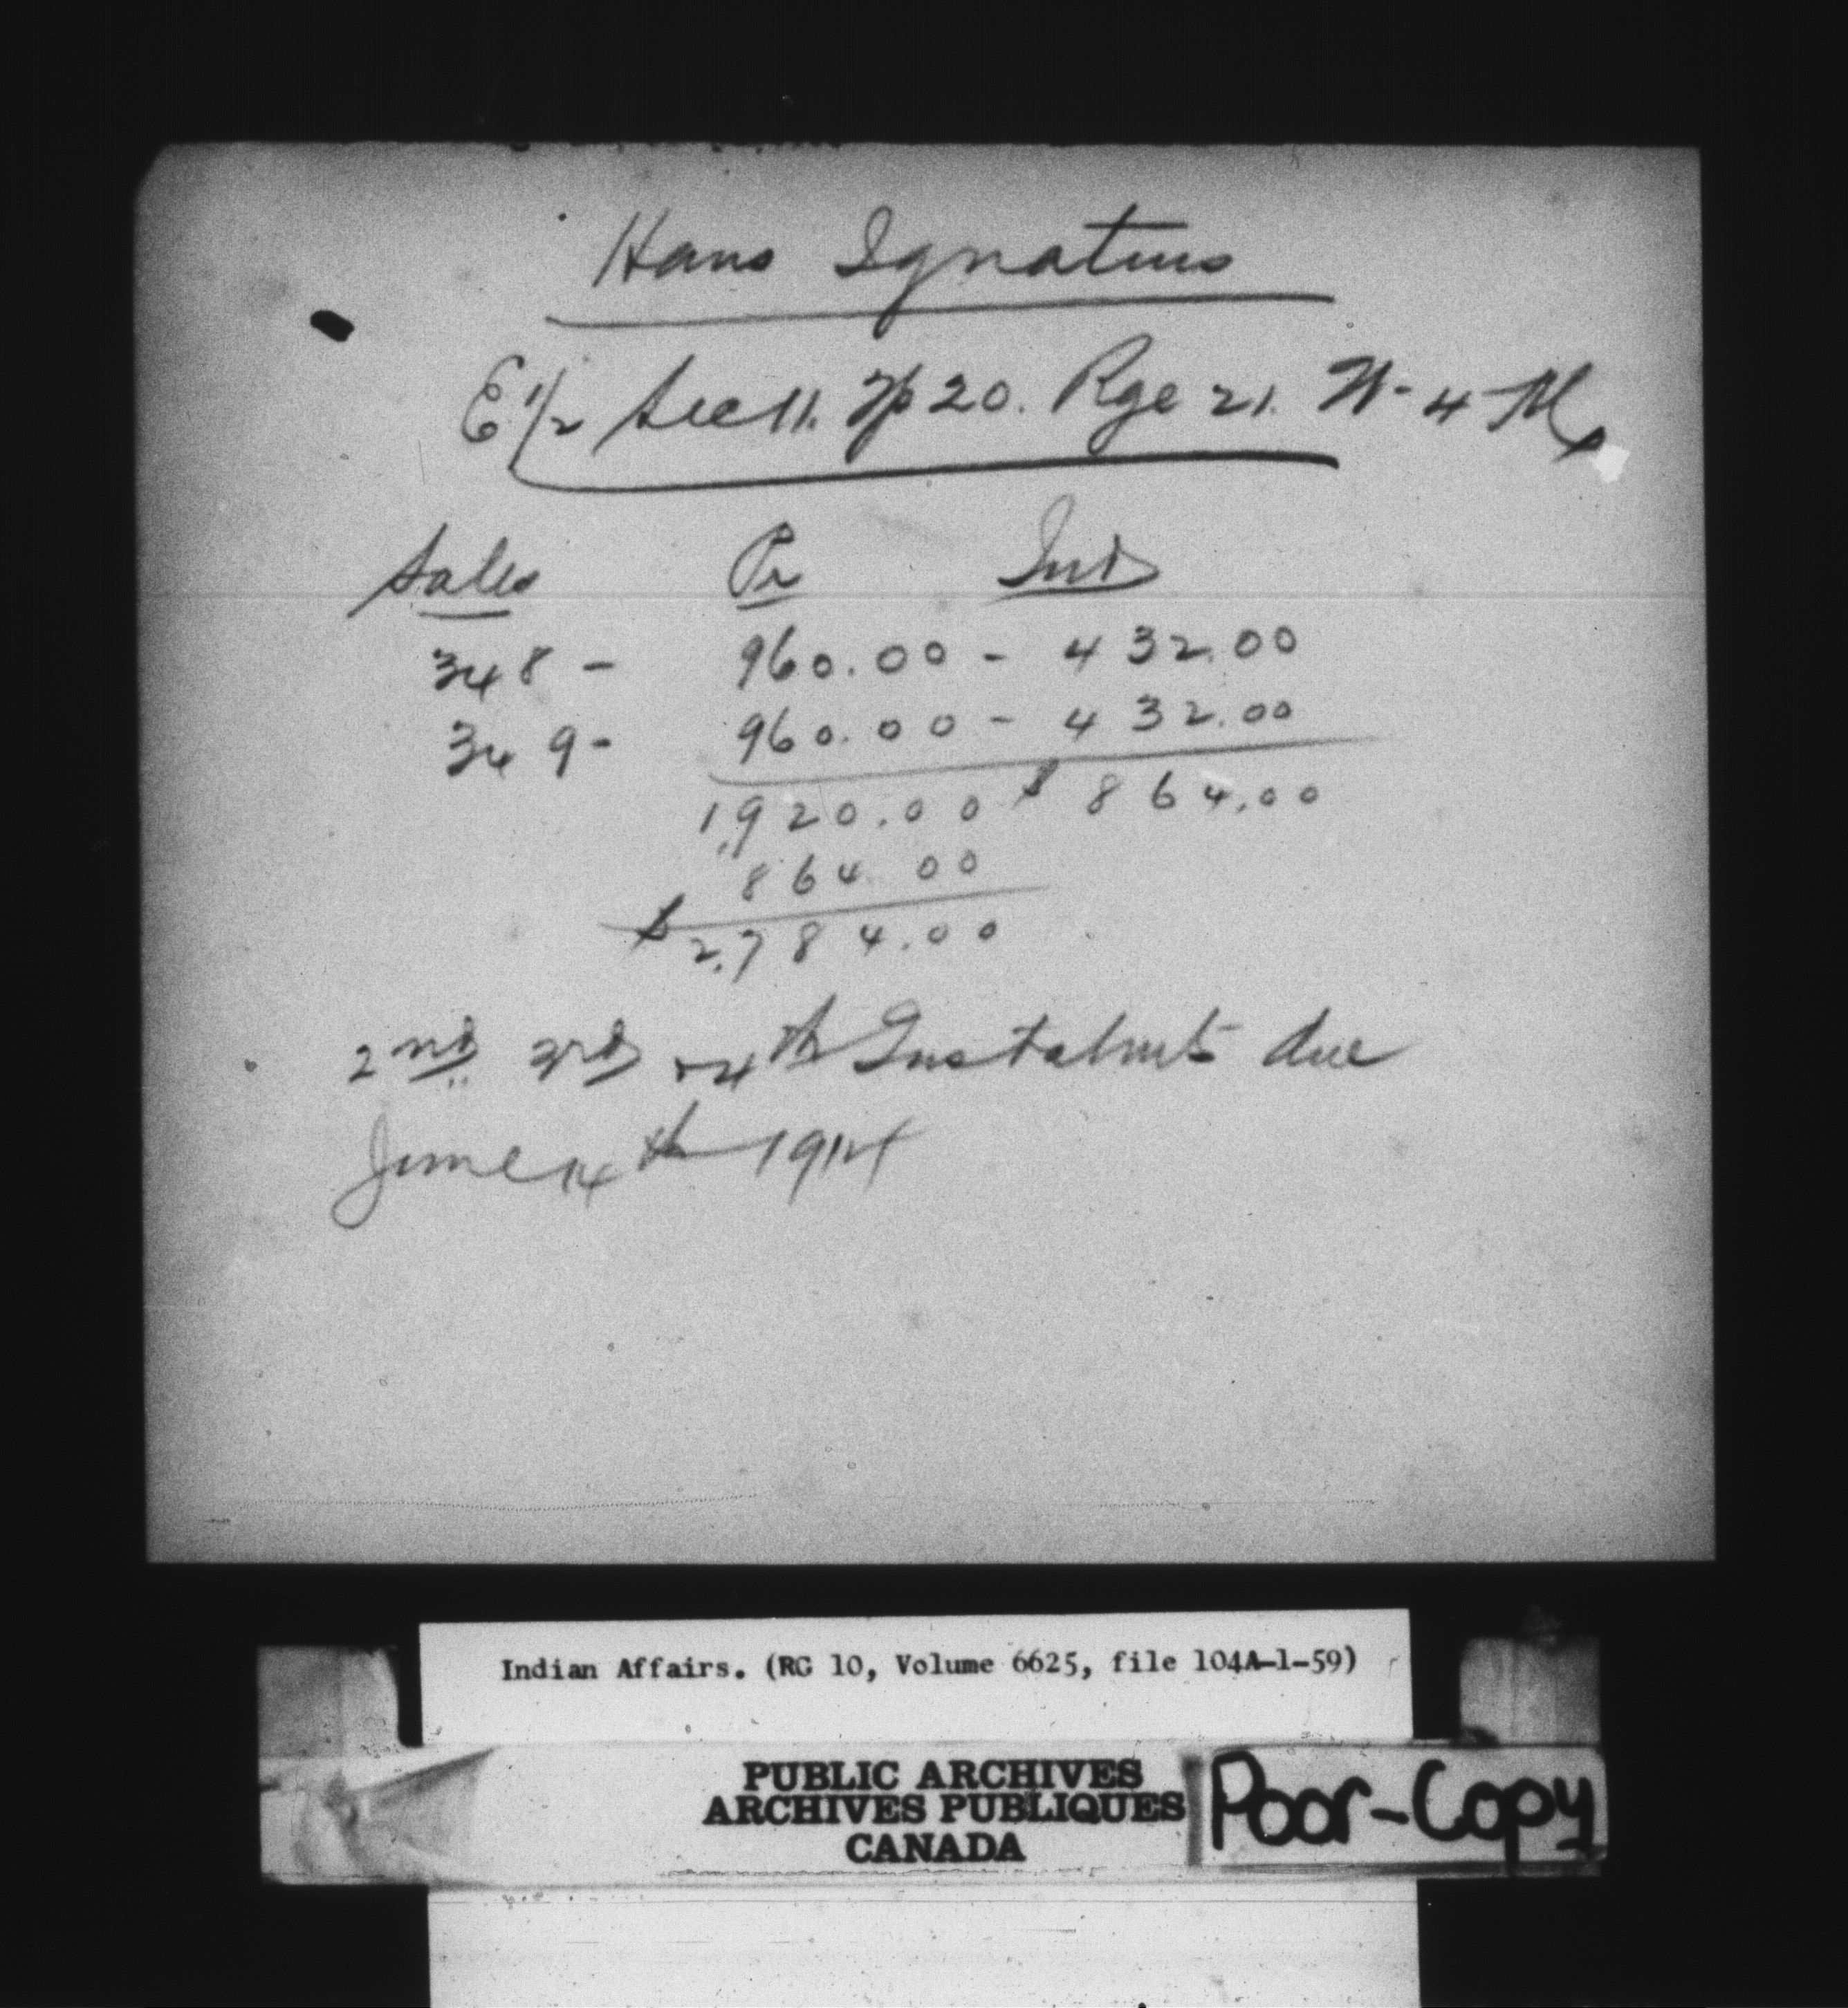 Hans Ignatius
E 1/2 Sec 11. Tp 20. Rge 21. W- 4 M
Sales Pr Int
348 - 960.00 - 432.00
349 - 960.00 - 432.00
1,920.00 $ 864.00
864.00
$ 2,784.00
2nd 3rd + 4th Instalmts due
June 14th 1914
Indian Affairs. (RG 10, Volume 6625, file 104A-1-59)
PUBLIC ARCHIVES
ARCHIVES PUBLIQUES
CANADA
Poor-Copy